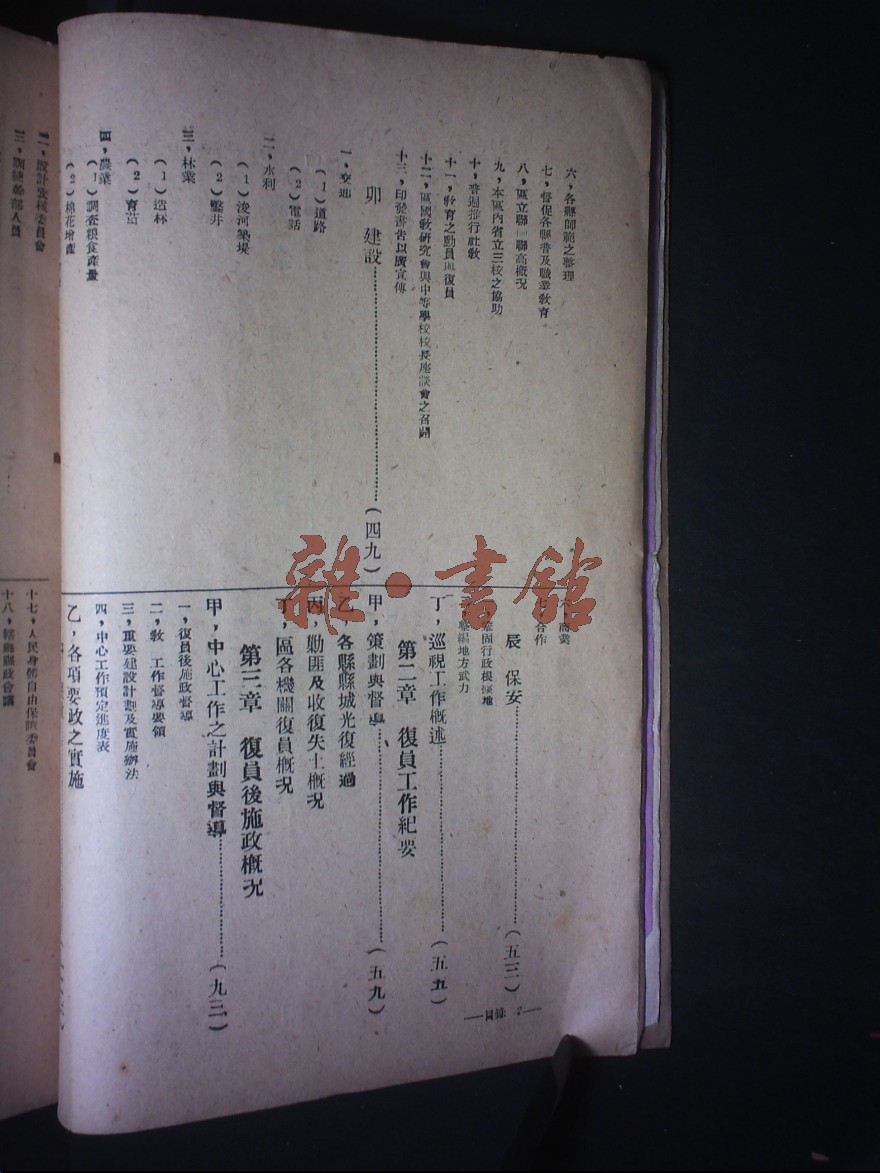 六，各縣師範之整理
七，督促各縣普及職業教育
八，區立聯師聯高概况
九，本區內省立三校之協助
十，普遍推行社教
十一，教育之動員與復員
十二，區國教研究會與中等學校校長座談會之召開
十三，印發書告以廣宣傳
卯 建設……（四九）
一，交通
（1）道路
（2）電話
二，水利
（1）浚河築堤
（2）鑿井
三，林業
（1）造林
（2）育苗
四，農業
（1）調查粮食產量
（2）棉花增產
商業
合作
辰 保安……（五三）
鞏固行政根據地
整編地方武力
丁，巡視工作概述……（五五）
第二章 復員工作紀要
甲，策劃與督導……（五九）
乙，各縣縣城光復經過
丙，勦匪及收復失土概况
丁，區各機關復員概况
第三章 復員後施政概况
甲，中心工作之計劃與督導……（九三）
一，復員後施政督導
二，教 工作督導要領
三，重要建設計劃及實施辦法
四，中心工作預定進度表
乙，各項要政之實施
目錄 2
二，設計考核委員會
三，訓練幹部人員
十七，人民身體自由保障委員會
十八，轄縣縣政會議
雜·書館